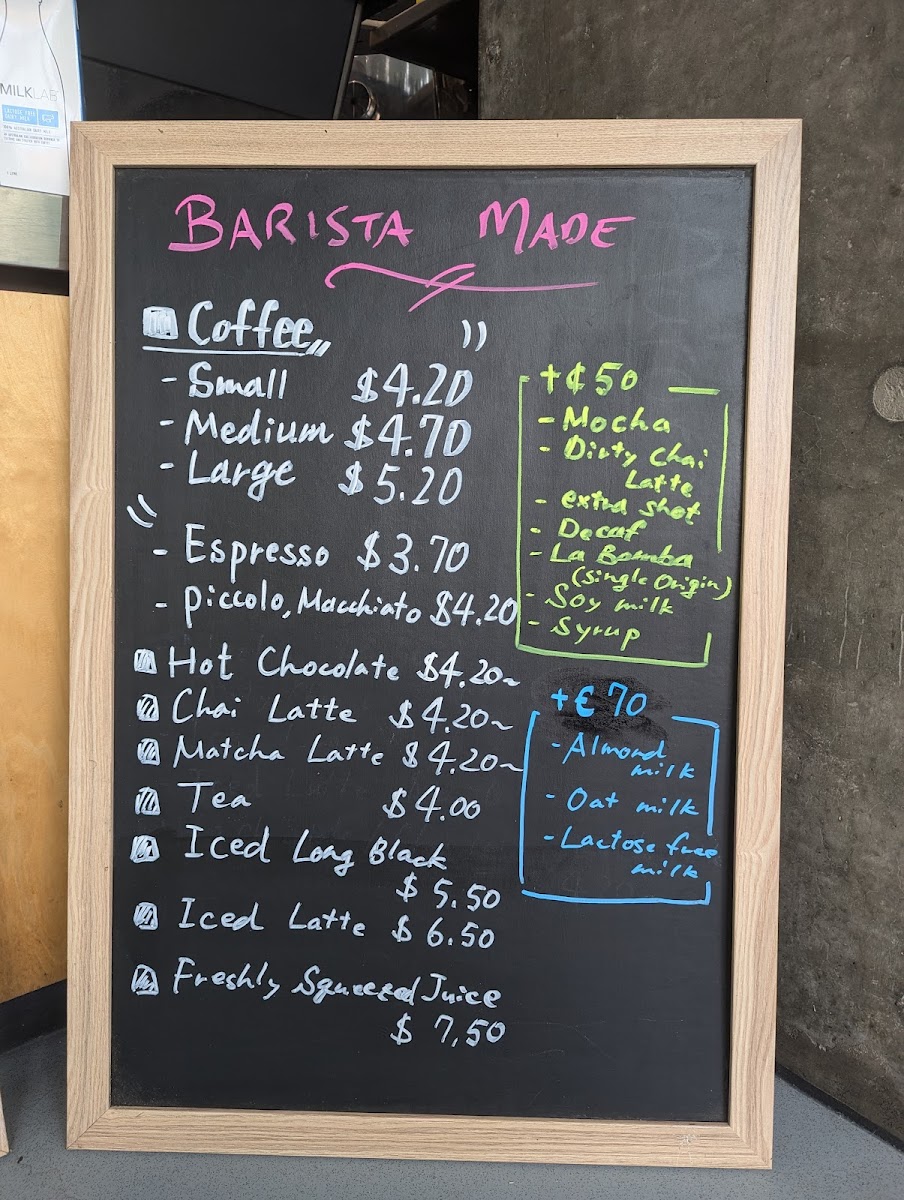 MILKLAB
LACTOSE FREE
DAIRY MILK
BARISTA MADE
Coffee
- Small $4.20
- Medium $4.70
- Large $5.20
- Espresso $3.70
- Piccolo, Macchiato $4.20
Hot Chocolate $4.20~
Chai Latte $4.20~
Matcha Latte $4.20~
Tea $4.00
Iced Long Black
$5.50
Iced Latte $6.50
Freshly Squeezed Juice
$7,50
+¢50
- Mocha
- Dirty Chai
Latte
- extra shot
- Decaf
- La Bomba
(single Origin)
- Soy milk
- Syrup
+€70
- Almond
milk
- Oat milk
- Lactose free
milk